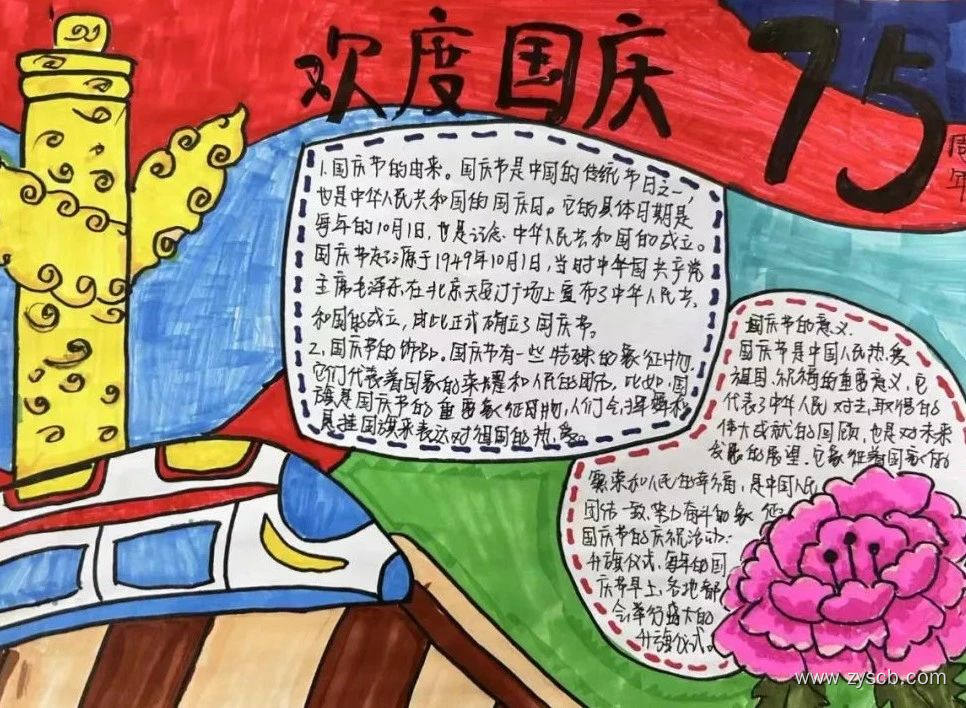 欢度国庆
75
周年
1.国庆节的由来。国庆节是中国的传统节日之一,
也是中华人民共和国的国庆日。它的具体日期是
每年的10月1日,也是记念中华人民共和国的成立。
国庆节起源于1949年10月1日,当时中华国共产党
主席毛泽东在北京天安门广场上宣布了中华人民共
和国的成立,由此正式确立了国庆节。
2.国庆节的饰品。国庆节有一些特殊的象征物,
它们代表着国家的荣耀和人民的团结。比如,国
旗是国庆节的重要象征物,人们会挥舞和
悬挂国旗来表达对祖国的热爱。
国庆节的意义.
国庆节是中国人民热爱
祖国、祝福的重要意义,它
代表了中华人民对过去取得的
伟大成就的回顾,也是对未来
发展的展望。它象征着国家的
繁荣和人民的幸福,是中国人民
团结一致、努力奋斗的象征
国庆节的庆祝活动:
升旗仪式,每年的国
庆节早上,各地都
会举行盛大的
升旗仪式。
www.zyscb.com